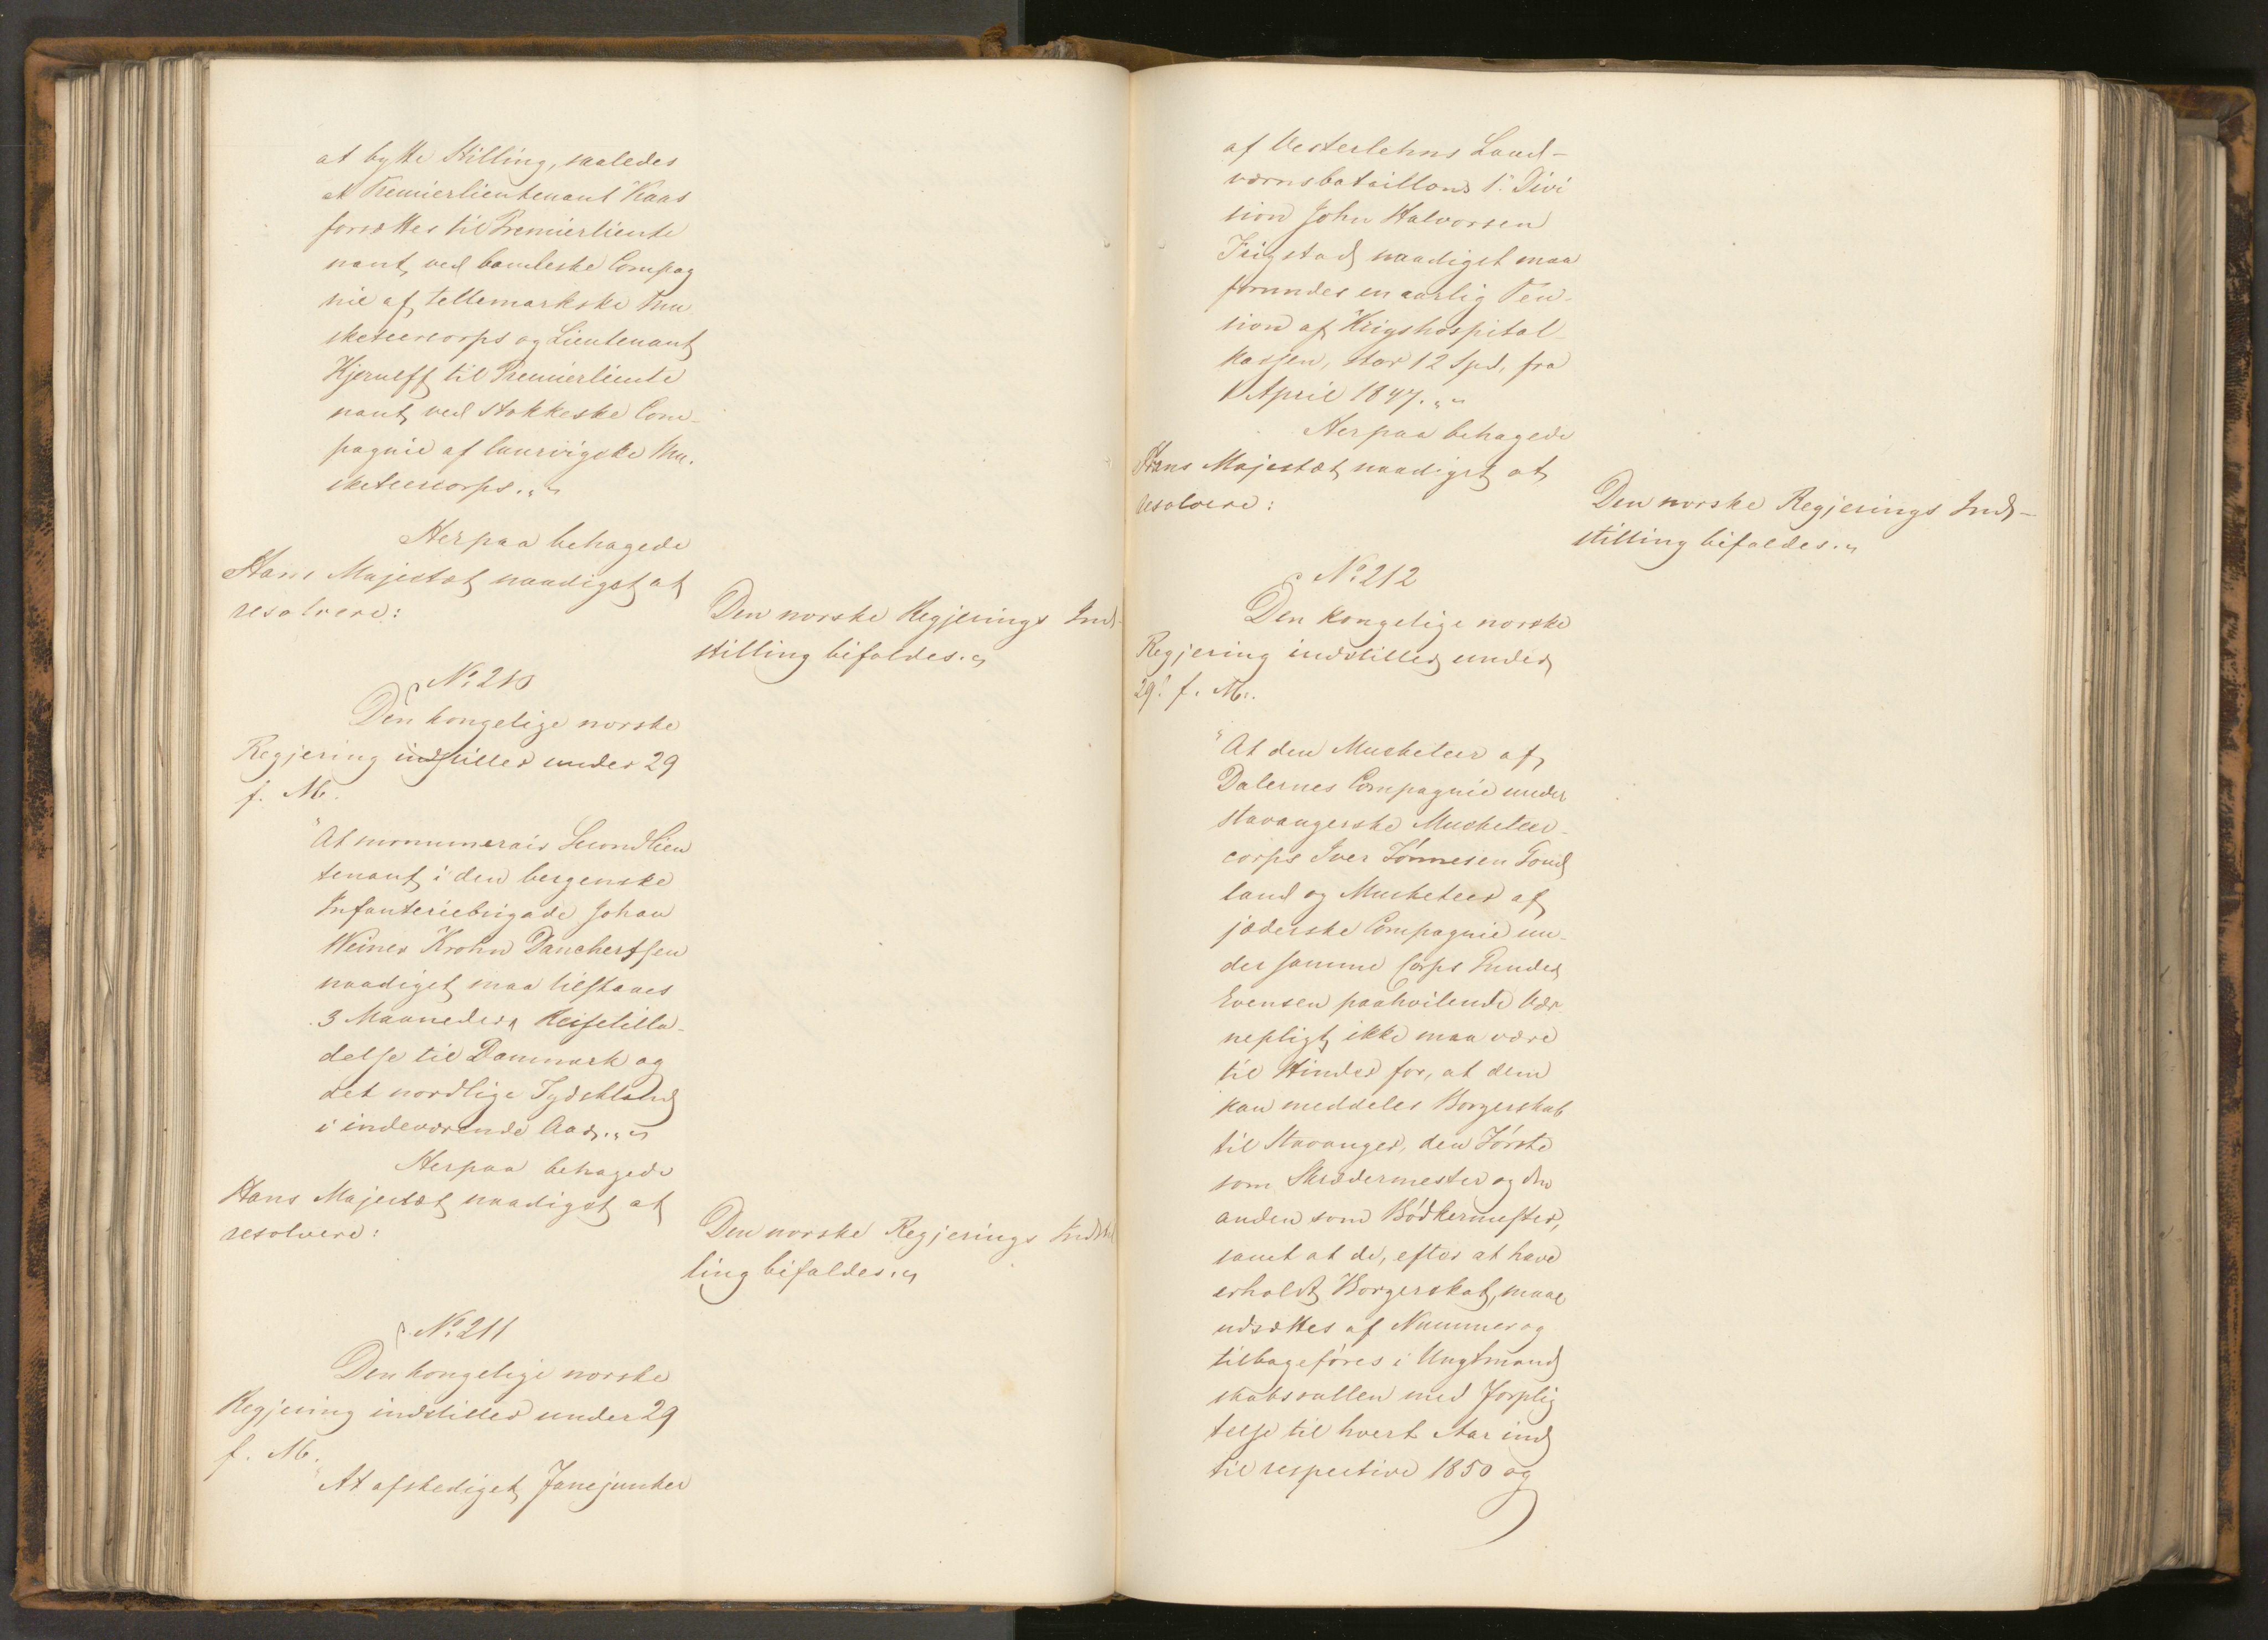 at bytte Stilling, saaledes
at Premierlieutenant Kaas
forsættes til Premierlieute
nant ved bambleske Compag
nie af tellemarkske Mu
sketeercorps og Lieutenant
Hjerulff til Premierlieute
nant ved stokkeske Com-
pagnie af laurvigske Mu-
sketeercorps."
Herpaa behagede
Hans Majestæt naadigst at
resolvere:
Den norske Regjerings Ind-
stilling bifaldes."
No 210
Den kongelige norske
Regjering indstiller under 29
f. M.
"At surnumerair Secondlieu
tenant i den bergenske
Infanteriebrigade Johan
Weiner Krohn Danchertsen
naadigst maa tilstaaes
3 Maaneders Reisetilla-
delse til Danmark og
det nordlige Tydskland
i indeværende Aar."
Herpaa behagede
Hans Majestæt naadigst at
resolvere:
Den norske Regjerings Indstil
ling bifaldes."
No 211
Den kongelige norske
Regjering indstiller under 29
f. M.
"At afskediget Fanejunker
af Vesterlehns Land-
værnsbataillons 1e Divi
sion John Halvorsen
Feigstad naadigst maa
forundes en aarlig Pen-
sion af Krigshospital-
kassen, stor 12 Spd, fra
1 April 1847."
Herpaa behagede
Hans Majestæt naadigst at
resolvere:
Den norske Regjerings Ind-
stilling bifaldes."
No 212
Den kongelige norske
Regjering indstiller under
29e f. M.
"At den Musketeer af
Dalernes Compagnie under
stavangerske Musketeer-
corps Iver Tönnesen
land og Musketeer af
jæderske Compagnie un-
der samme Corps Peder
Evensen paahvilende Vær
nepligt ikke maa være
til Hinder for, at dem
kan meddeles Borgerskab
til Stavanger, den Förste
som Skrædermester og den
anden som Bödkermester,
samt at de, efter at have
erholdt Borgerskab, maae
udsættes af Nummer og
tilbageföres i Ungtmand
skabsrullen med Forplig
telse til hvert Aar ind
til respective 1850 og